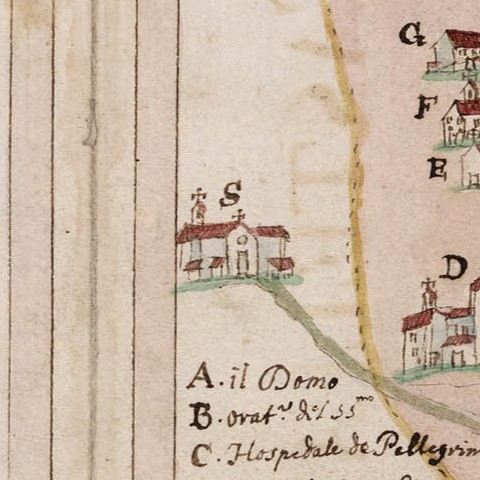 G
F
E
S
D
A. il Domo
B. orat.
C. Hospedale de Pellegrin